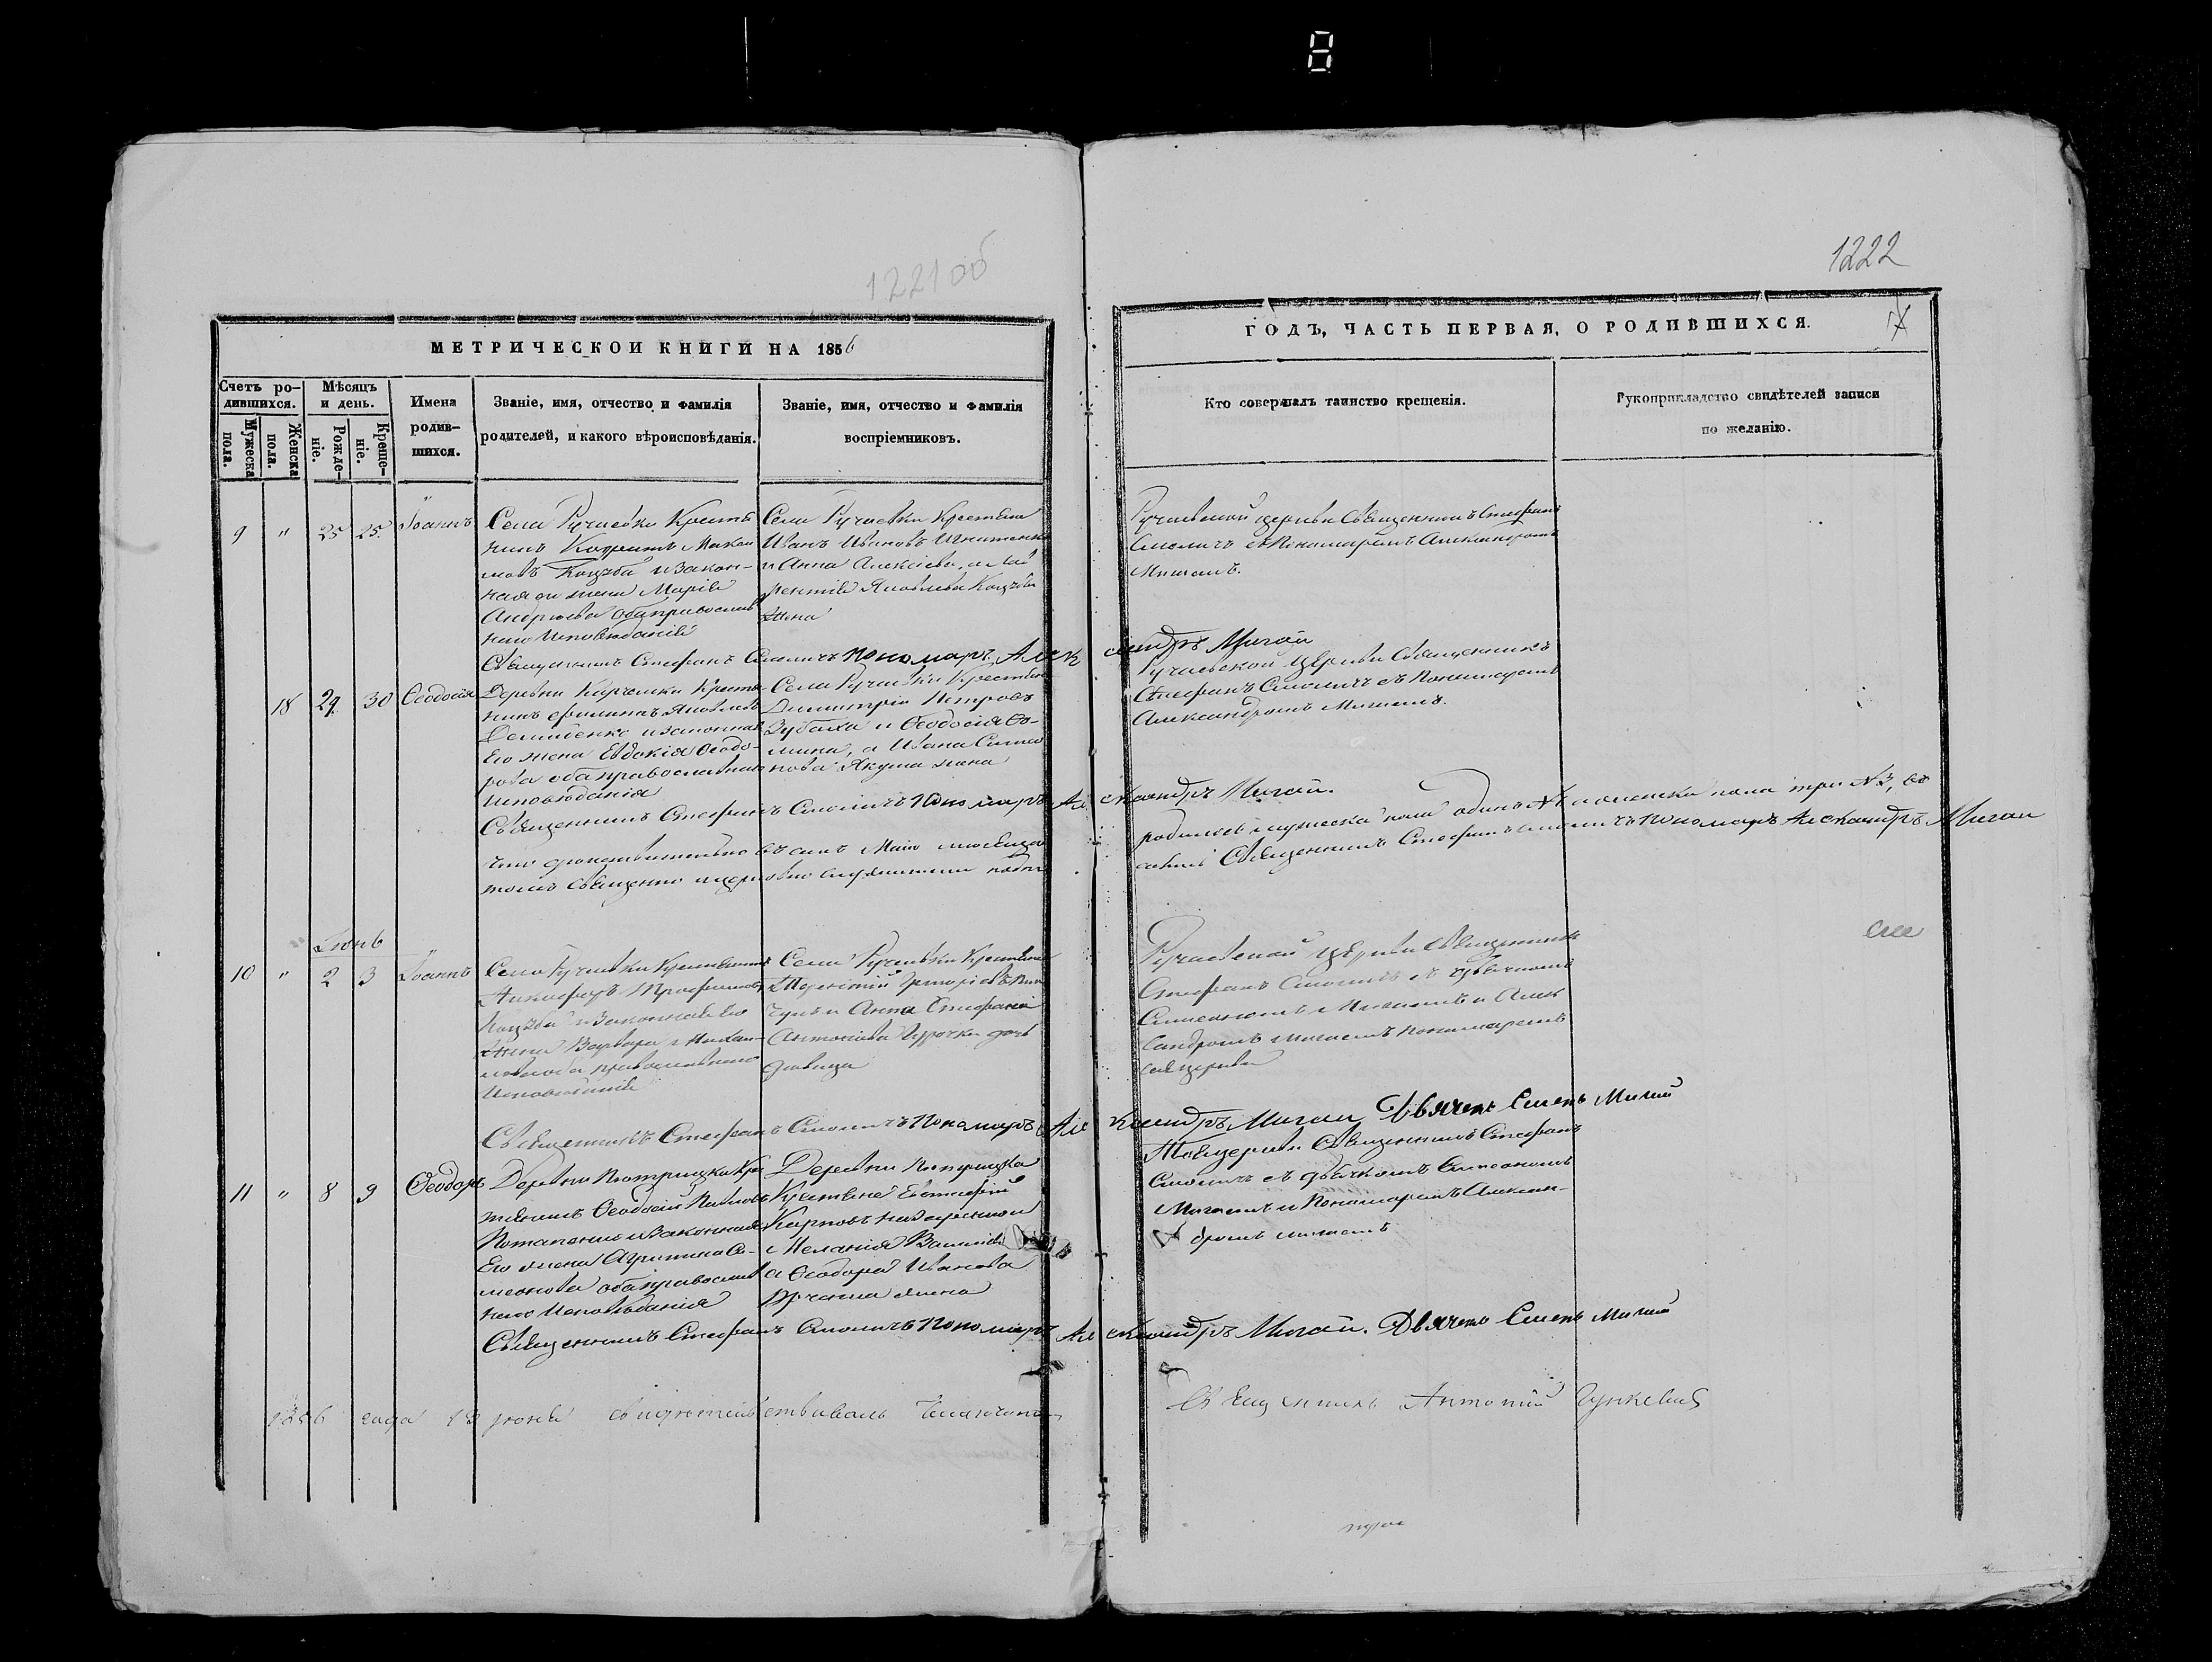 1221об
1222
МЕТРИЧЕСКОИ КНИГИ НА 1856
ГОДЪ, ЧАСТЬ ПЕРВАЯ, О РОДИВШИХСЯ.
Счетъ ро-
дившихся.
Мужеска
пола.
Женска
пола.
Мѣсяцъ
и день.
Рожде-
ніе.
Креще-
ніе.
Имена
родив-
шихся.
Званіе, имя, отчество и фамилія
родителей, и какого вѣроисповѣданія.
Званіе, имя, отчество и фамилія
воспріемниковъ.
Кто совершалъ таинство крещенія.
Рукоприкладство свидѣтелей записи
по желанію.
9 " 25 25 Іоаннъ
Села Ручаевки Крестья
нинъ
мовъ Коцуба и закон-
ная его жена Марія
Андреева оба православ
наго исповѣданія
Села Ручаевки Крестьяне
Иванъ Ивановъ Игнатенко
и Анна Алексіева, а Лав
рентія Яковлева Коцубы
жена
Ручаевской церкви Священникъ Стефанъ
Смоличъ съ Пономаремъ Александромъ
Мигаемъ.
Священникъ Стефанъ Смоличъ Пономаръ Александръ Мигай
18 29 30 Ѳеодосія
Деревни Крестья
нинъ Филиппъ Яковлевъ
Демиденко и законная
Его жена Евдокія Ѳеодо-
рова оба православнаго
исповѣданія
Села Ручаевки Крестьяне
Димитрій Петровъ
Зубаха и Ѳеодосія Ѳо-
мина, а Ивана Симео
нова Якуша жена
Ручаевской Церкви Священникъ
Стефанъ Смоличъ съ Пономаремъ
Александромъ Мигаемъ.
Священникъ Стефанъ Смоличъ Пономаръ Александръ Мигай.
Что дѣйствительно въ семъ Маіи мѣсяцѣ родилось мужеска пола одинъ №1 и женска пола три №3, въ
томъ Священно и церковно служители подписались Священникъ Стефанъ Смоличъ Пономаръ Александръ Мигай
Іюнь
10 " 2 3 Іоаннъ
Села Ручаевки Крестьянинъ
Никифоръ Трофимовъ
Коцуба и Законная его
Жена Варвара Михаи-
лова оба православнаго
Исповѣданія
Села Ручаевки Крестьяне
Терентій Григоріевъ
и Анна Стефана
Антоніева Курочки дочь
дѣвица
Ручаевской Церкви Священникъ
Стефанъ Смоличъ съ дьячкомъ
Симеономъ Мигаемъ и Алек
сандромъ Мигаемъ Пономаремъ
сея церкви
Священникъ Стефанъ Смоличъ Пономаръ Александръ Мигай Дьячекъ Семенъ Мигай
11 " 8 9 Ѳеодоръ
Деревни Кре
стьянинъ Ѳеодосій Павловъ
Потапенко и законная
Его жена Агрипина Си-
меонова оба православ
наго Исповѣданія
Деревни
Крестьяне Евстафій
Карповъ
и Меланія
а Ѳеодора Иванова
жена
Тояжъ церкви Священникъ Стефанъ
Смоличъ съ дьячкомъ Симеономъ
Мигаемъ и Пономаремъ Алексан-
дромъ Мигаемъ
Священникъ Стефанъ Смоличъ Пономаръ Александръ Мигай. Дьячекъ Семенъ Мигай
1856 года 13 іюня свидѣтельствовалъ Благочинный Священникъ Антоній